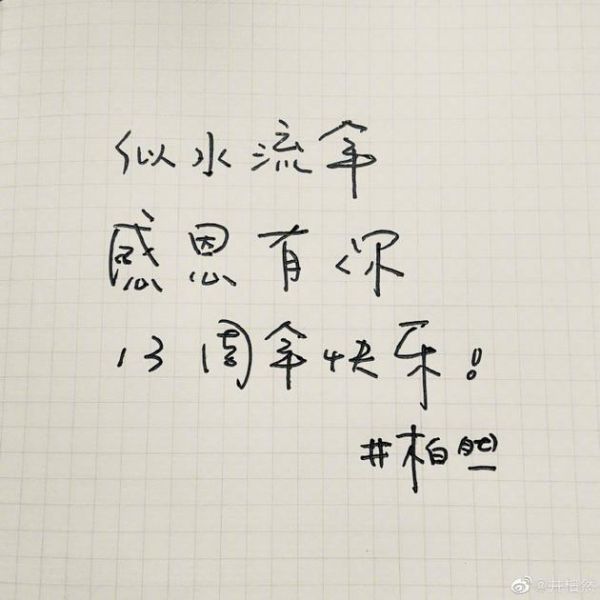 似水流年
感恩有你
13周年快乐!
井柏然
@井柏然